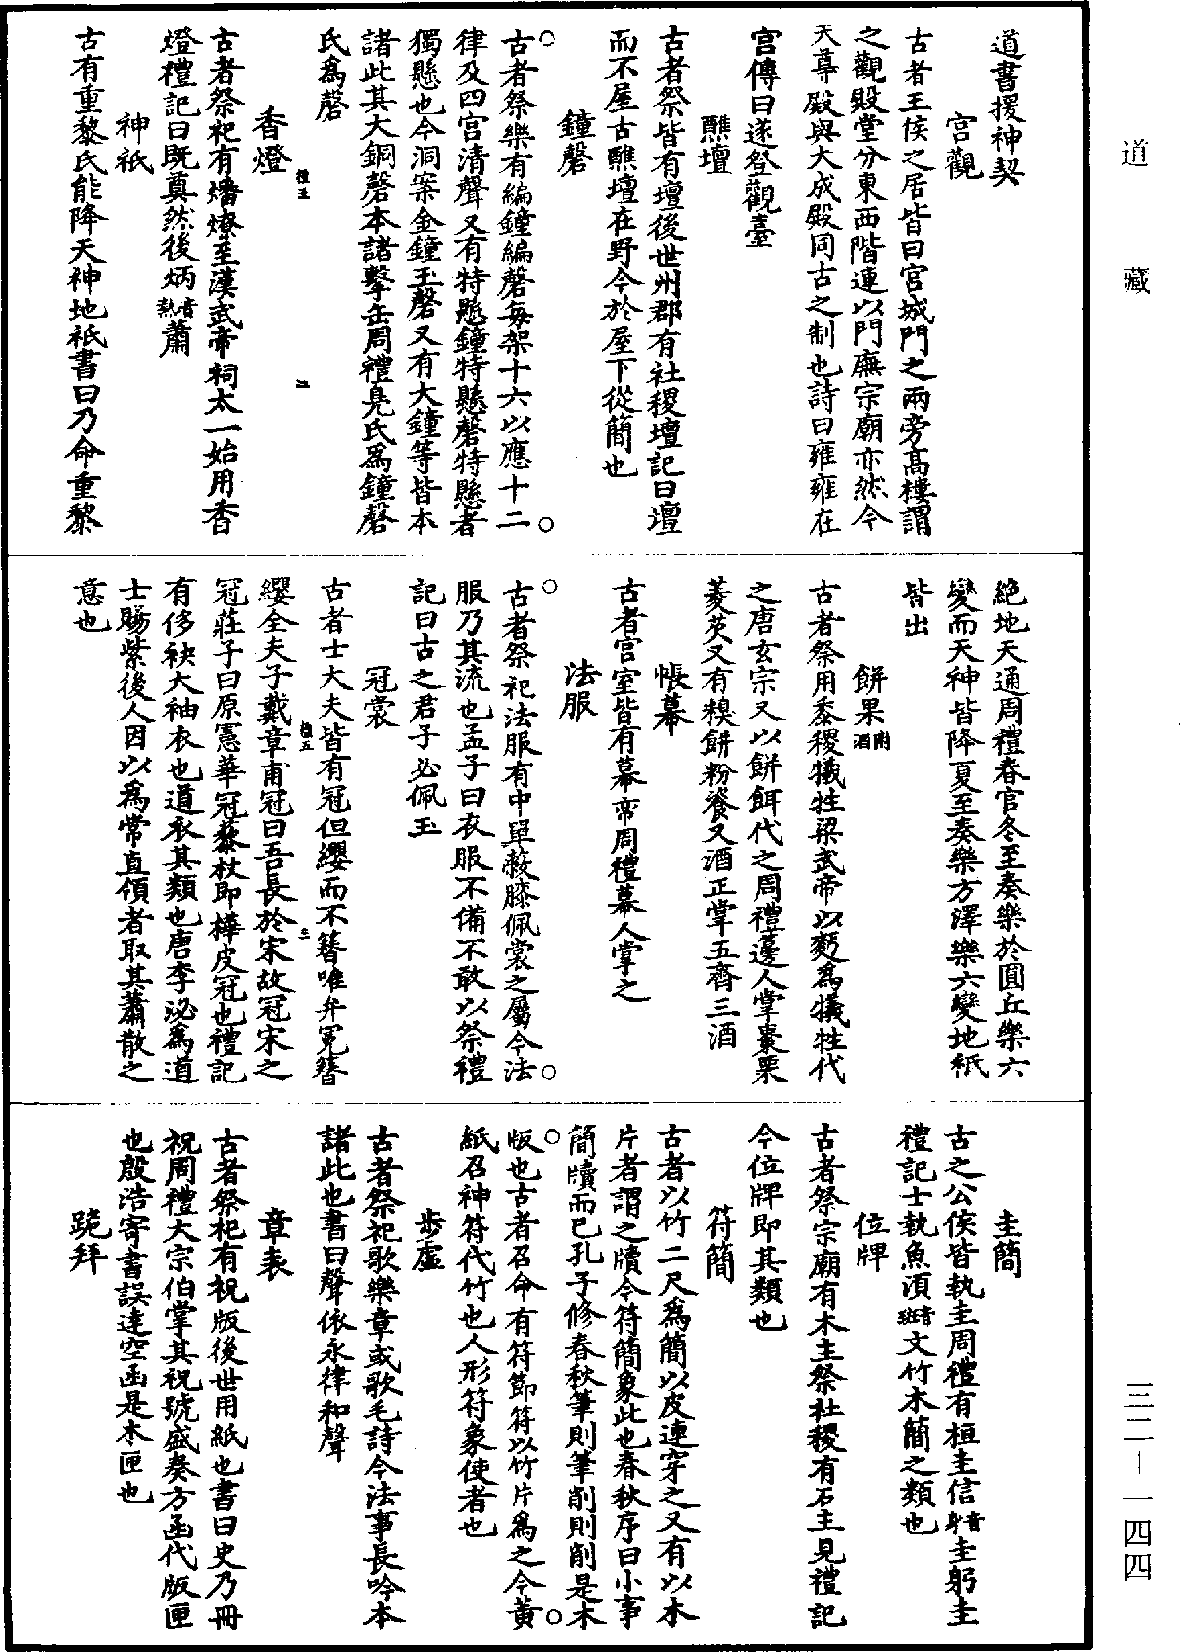 道書援神契
宮觀
古者王侯之居皆曰宮城門之兩旁高樓謂
之觀殿堂分東西階連以門廡宗廟亦然今
天尊殿與大成殿同古之制也詩曰雍雍在
宮傳曰遂登觀臺
醮壇
古者祭皆有壇後世州郡有社稷壇記曰壇
而不屋古醮壇在野今於屋下從簡也
鐘磬
古者祭樂有編鐘編磬每架十六以應十二
律及四宮清聲又有特懸鐘特懸磬特懸者
獨懸也今洞案金鐘玉磬又有大鐘等皆本
諸此其大銅磬本諸擊缶周禮鳧氏爲鐘磬
氏爲磬
香燈
古者祭祀有燔燎至漢武帝祠太一始用香
燈禮記曰既奠然後炳音熱蕭
神祇
古有重黎氏能降天神地祇書曰乃命重黎
絕地天通周禮春官冬至奏樂於圓丘樂六
變而天神皆降夏至奏樂方澤樂六變地祇
皆出
餅果附酒
古者祭用黍稷犧牲梁武帝以麪爲犧牲代
之唐玄宗又以餅餌代之周禮籩人掌棗栗
菱芡又有糗餅粉餈又酒正掌五齊三酒
帳幕
古者宮室皆有幕帟周禮幕人掌之
法服
古者祭祀法服有中單蔽膝佩裳之屬今法
服乃其流也孟子曰衣服不備不敢以祭禮
記曰古之君子必佩玉
冠裳
古者士大夫皆有冠但纓而不簪唯弁冕簪
纓全夫子戴章甫冠曰吾長於宋故冠宋之
冠莊子曰原憲華冠藜杖即樺皮冠也禮記
有侈袂大袖衣也道衣其類也唐李泌爲道
士賜紫後人因以爲常直領者取其蕭散之
意也
圭簡
古之公侯皆執圭周禮有桓圭信音身圭躬圭
禮記士執魚湏音班文竹木簡之類也
位牌
古者祭宗廟有木主祭社稷有石主見禮記
今位牌即其類也
符簡
古者以竹二尺爲簡以皮連穿之又有以木
片者謂之牘今符簡象此也春秋序曰小事
簡牘而已孔子修春秋筆則筆削則削是木
版也古者召命有符節符以竹片爲之今黃
紙召神符代竹也人形符象使者也
步虛
古者祭祀歌樂章或歌毛詩今法事長吟本
諸此也書曰聲依永律和聲
章表
古者祭祀有祝版後世用紙也書曰史乃冊
祝周禮大宗伯掌其祝號盛奏方函代版匣
也殷浩寄書誤達空函是木匣也
跪拜
道藏
三二—一四四